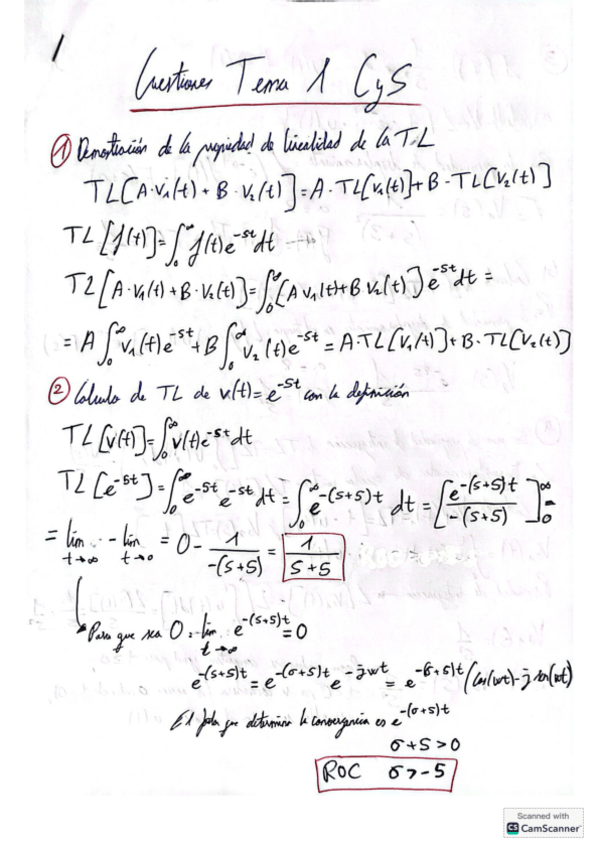 1
Cuestiones Tema 1 CyS
① Demostración de la propiedad de linealidad de la TL
TL[A·v₁(t) + B·v₂(t)] = A·TL[v₁(t)] + B·TL[v₂(t)]
TL[f(t)] = ∫₀^∞ f(t)e^-st dt
TL[A·v₁(t) + B·v₂(t)] = ∫₀^∞ [A v₁(t) + B v₂(t)] e^-st dt =
= A ∫₀^∞ v₁(t)e^-st + B ∫₀^∞ v₂(t)e^-st = A·TL[v₁(t)] + B·TL[v₂(t)]
② Calculo de TL de v(t) = e^-5t con la definición
TL[v(t)] = ∫₀^∞ v(t)e^-st dt
TL[e^-5t] = ∫₀^∞ e^-5t e^-st dt = ∫₀^∞ e^-(s+5)t dt = [e^-(s+5)t / -(s+5)]₀^∞ =
= lim t→∞ ·· - lim t→0 = 0 - 1/-(s+5) = 1/s+5
Para que sea 0: lim t→∞ e^-(s+5)t = 0
e^-(s+5)t = e^-(σ+5)t e^-jwt = e^-(σ+5)t (cos(wt) - j sen(wt)
El que determina la convergencia es e^-(σ+5)t
σ+5 > 0
ROC σ > -5
Scanned with
CS CamScanner